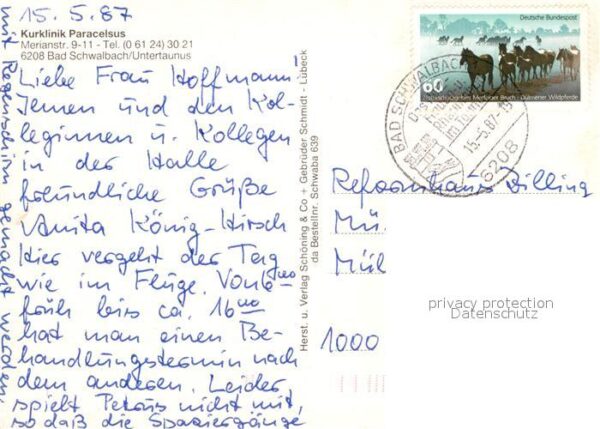 15.5.87
Kurklinik Paracelsus
Merianstr. 9-11 - Tel. (0 61 24) 30 21
6208 Bad Schwalbach/Untertaunus
Liebe Frau Hoffmann!
Ihnen und den Kol-
leginnen u. Kollegen
in der Halle
freundliche Grüße
Anita König-Hirsch
Hier vergeht der Tag
wie im Fluge. Von
früh bis ca. 16 00
hat man einen Be-
handlungstermin nach
dem anderen. Leider
spielt Petrus nicht mit,
so daß die Spaziergänge
mit Regenschirm gemacht werden.
Herst. u. Verlag Schöning & Co + Gebrüder Schmidt - Lübeck
da Bestellnr. Schwaba 639
Deutsche Bundespost
60
Naturschutzgebiet Merfelder Bruch · Dülmener Wildpferde
BAD SCHWALBACH
15.-5.87-15
6208
Reformhaus Billing
Mü.
Mül
1000
privacy protection
Datenschutz